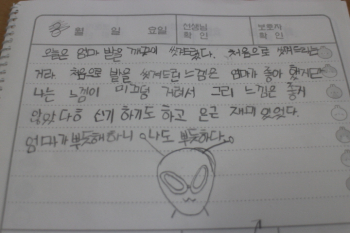 월 일 요일 선생님 확인 보호자 확인
오늘은 엄마 발을 깨끗이 씻겨드렸다. 처음으로 씻겨드리는
거라 처음으로 발을 씻겨드린 느낌은 엄마가 좋아 했지만
나는 느낌이 미끄덩 거려서 그리 느낌은 좋지
않았다 하지만 신기 하기도 하고 은근 재미 있었다.
엄마가 뿌듯해 하니 나도 뿌듯하다.